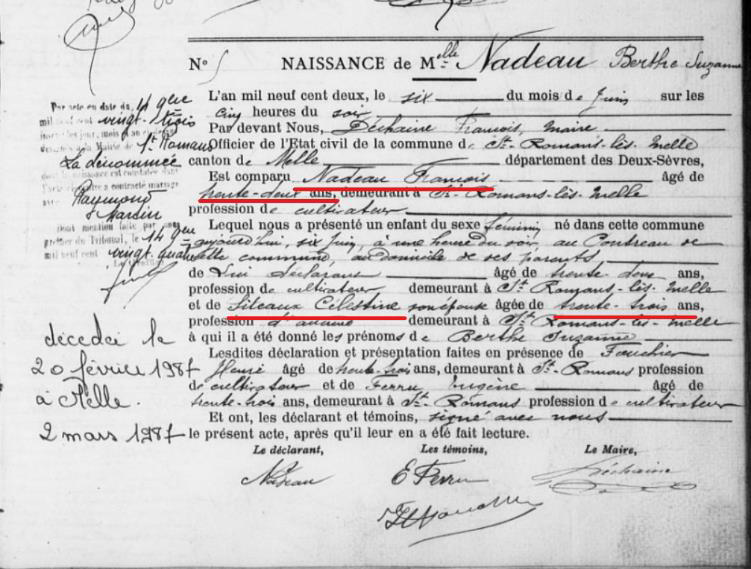 N° 5 NAISSANCE de Melle Nadeau Berthe Suzanne
L'an mil neuf cent deux, le six du mois de Juin sur les
cinq heures du soir
Par devant Nous, Déchaine François, Maire
Officier de l'Etat civil de la commune de St Romans-lès-Melle
canton de Melle département des Deux-Sèvres,
Est comparu Nadeau François âgé de
trente-deux ans, demeurant à St Romans-lès-Melle
profession de cultivateur
Lequel nous a présenté un enfant du sexe féminin né dans cette commune
aujourd'hui, six Juin, à une heure du soir, au
cette commune, au domicile de ses parents
de Lui déclarant âgé de trente deux ans,
profession de cultivateur demeurant à St Romans-lès-Melle
et de Célestine son épouse âgée de trente-trois ans,
profession d'aucune demeurant à St Romans-lès-Melle
à qui il a été donné les prénoms de Berthe Suzanne
Lesdites déclaration et présentation faites en présence de
âgé de trente-trois ans, demeurant à St Romans profession
de cultivateur et de Ferru Eugène âgé de
trente-trois ans, demeurant à St Romans profession de cultivateur
Et ont, les déclarant et témoins, signé avec nous
le présent acte, après qu'il leur en a été fait lecture.
Le déclarant, Les témoins, Le Maire,
Nadeau E Ferru Déchaine
Par acte en date du
mil neuf cent vingt-trois
St Romans
La dénommée
a contracté mariage
Raymond
Mardin
mention faite par nous
du Tribunal, le 14
mil neuf cent vingt quatre
décédée le
20 février 1987
à Melle.
2 mars 1987